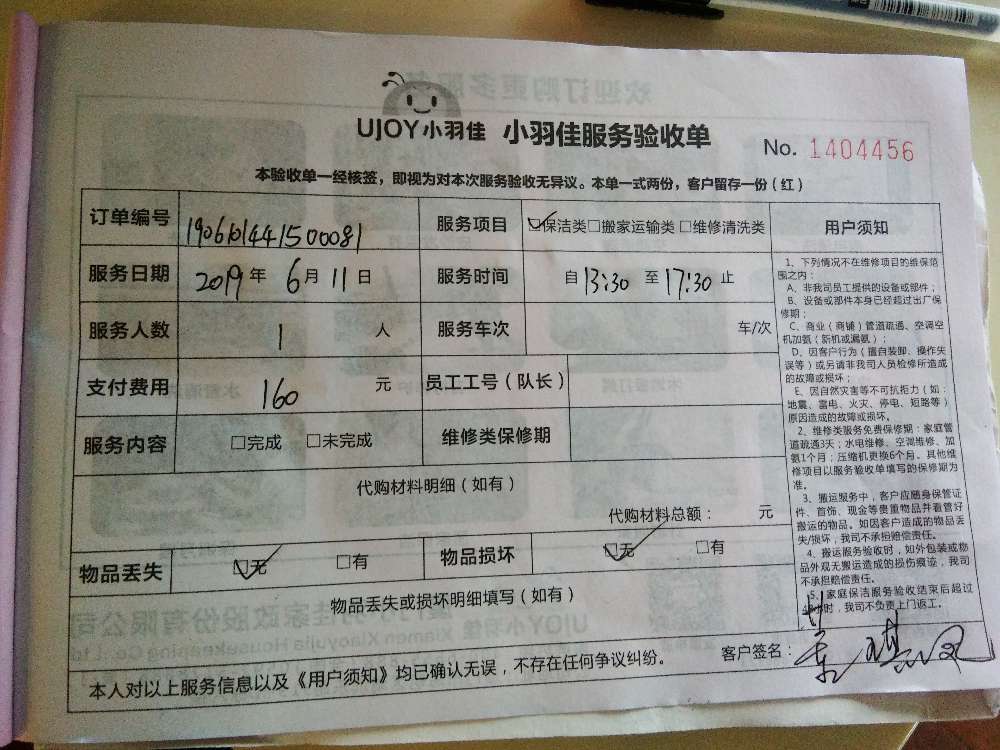 UJOY小羽佳 小羽佳服务验收单
No. 1404456
本验收单一经核签，即视为对本次服务验收无异议。本单一式两份，客户留存一份（红）
订单编号 190610441500081 服务项目 ☑保洁类□搬家运输类□维修清洗类
服务日期 2019年 6月 11日 服务时间 自13:30 至17:30止
服务人数 1 人 服务车次 车/次
支付费用 160 元 员工工号（队长）
服务内容 □完成 □未完成 维修类保修期
代购材料明细（如有）
代购材料总额： 元
物品丢失 ☑无 □有 物品损坏 ☑无 □有
物品丢失或损坏明细填写（如有）
本人对以上服务信息以及《用户须知》均已确认无误，不存在任何争议纠纷。
客户签名：
用户须知
1、下列情况不在维修项目的维保范
围之内：
A、非我司员工提供的设备或部件；
B、设备或部件本身已经超过出厂保
修期；
C、商业（商铺）管道疏通、空调空
机加氨（新机或漏氨）；
D、因客户行为（擅自装卸、操作失
误等）或另请非我司人员检修所造成
的故障或损坏；
E、因自然灾害等不可抗拒力（如：
地震、雷电、火灾、停电、短路等）
原因造成的故障或损坏。
2、维修类服务免费保修期：家庭管
道疏通3天；水电维修、空调维修、加
氨1个月；压缩机更换6个月。其他维
修项目以服务验收单填写的保修期为
准。
3、搬运服务中，客户应随身保管证
件、首饰、现金等贵重物品并看管好
搬运的物品。如因客户造成的物品丢
失/损坏，我司不承担赔偿责任。
4、搬运服务验收时，如外包装或物
品外观无搬运造成的损伤痕迹，我司
不承担赔偿责任。
5、家庭保洁服务验收结束后超过
小时，我司不负责上门返工。
欢迎订购更多服务
Xiamen Xiaoyujia Housekeeping Co., Ltd
UJOY小羽佳